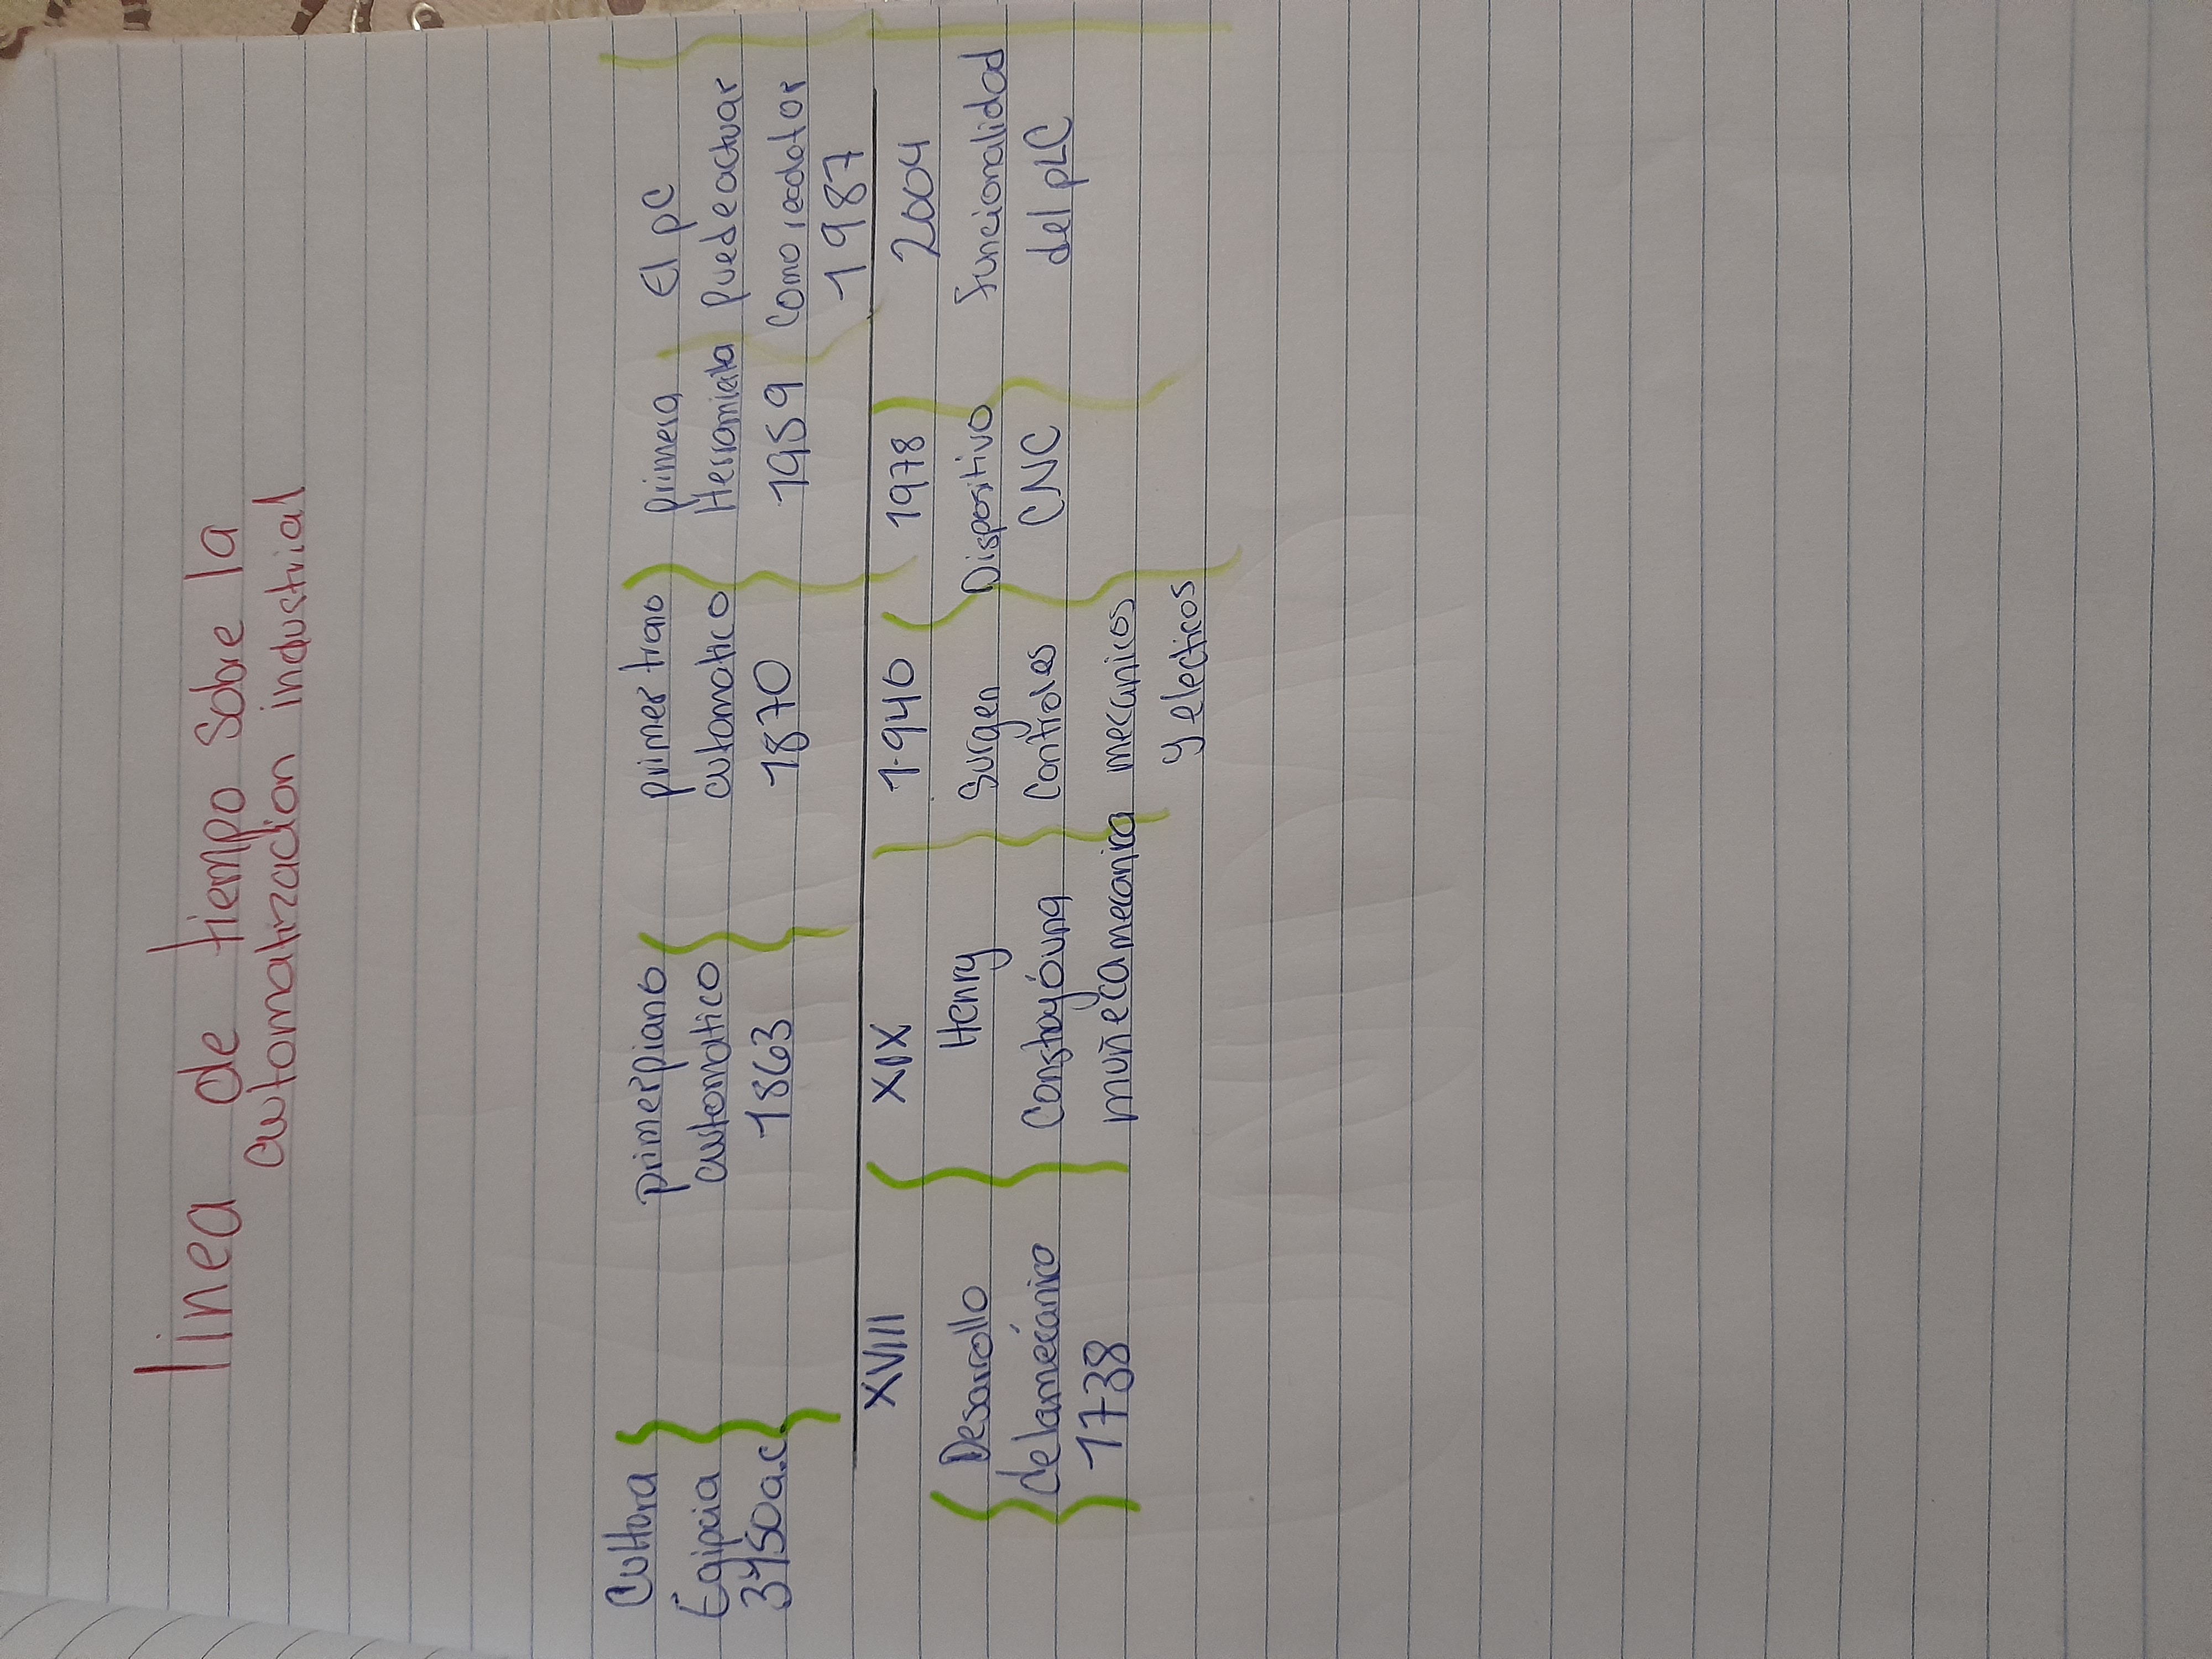 linea de tiempo sobre la
automatización industrial
Cultura
Egipcia
3450a.c.
primerpiano
automatico
1863
primer trao
automatico
1870
primera
Herramieta
1959
El pC
puede actuar
como
1987
XVIII
Desarollo
delamecánico
1738
XIX
Henry
Constuyóuna
muñecamecanica
1.940
Surgen
Controles
mecanicos
y electicos
1978
Dispositivo
CNC
2004
funcionalidad
del pLC